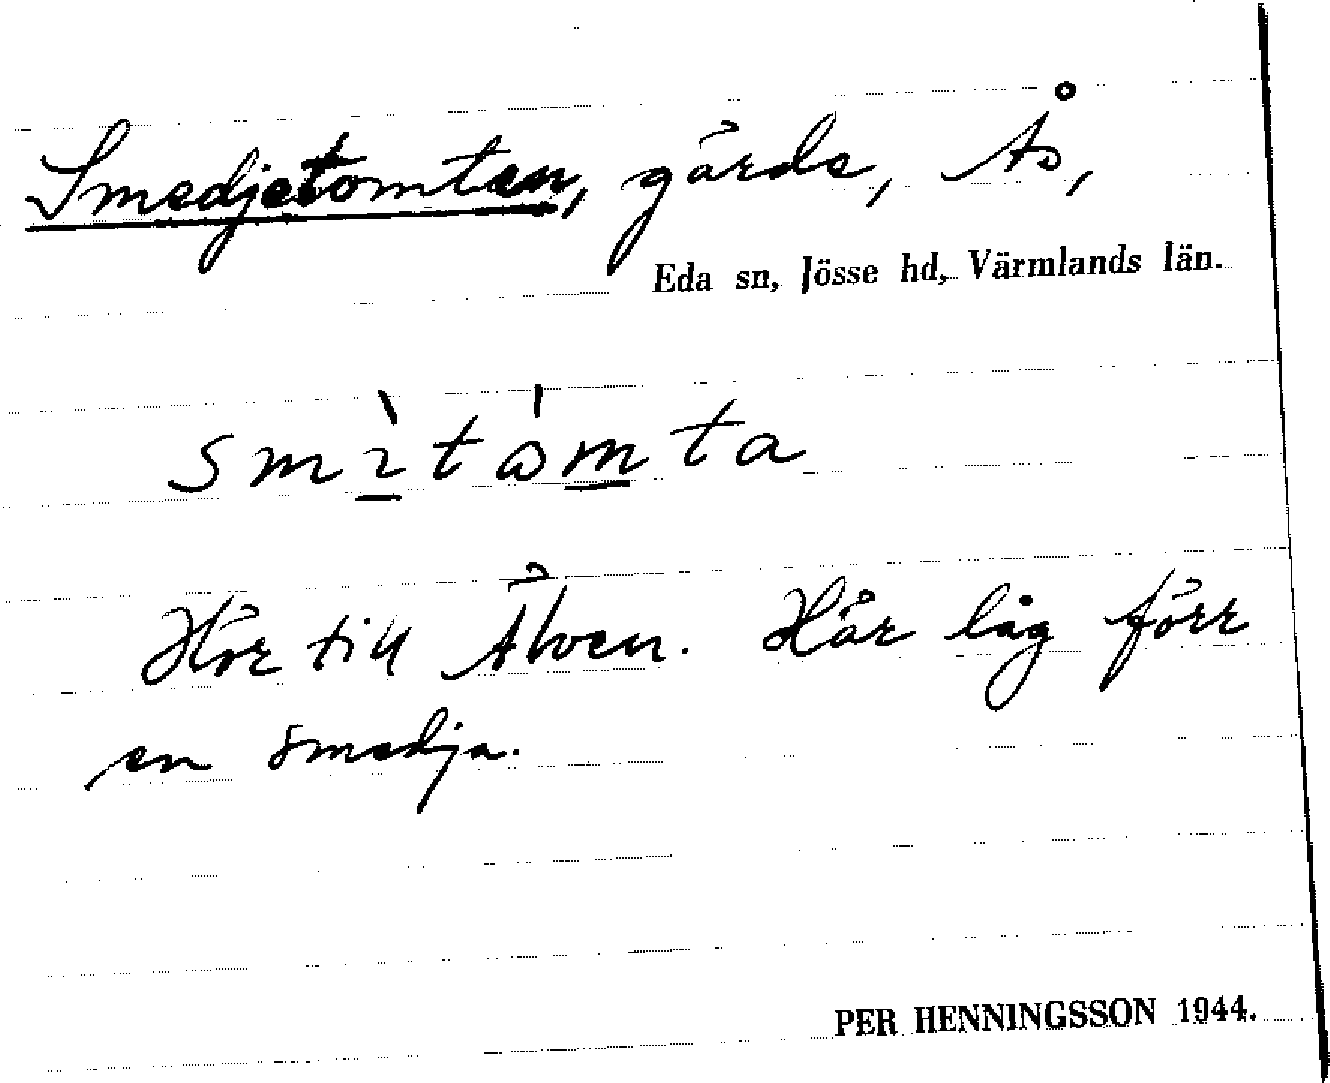 Smedjetomten, gärde, Ås,
Eda sn, Jösse hd, Värmlands län.
smìtɷ́mta
Hör till Älven. Här låg förr
en smedja.
PER HENNINGSSON 1944.